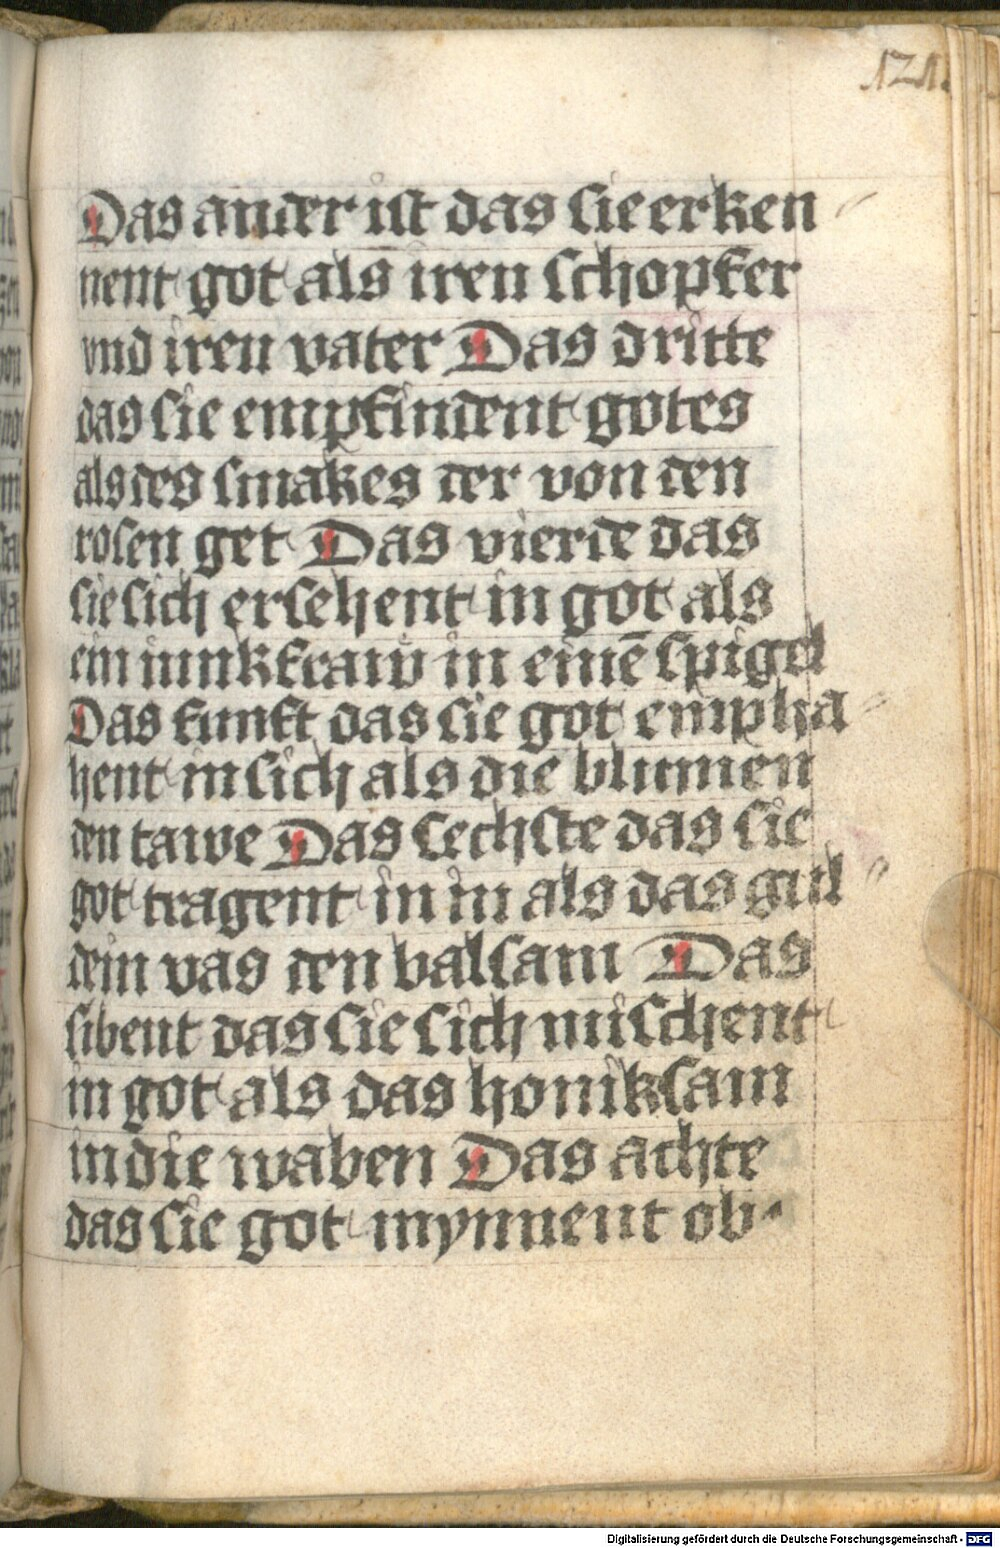 121.
Das ander ist das sie erken
nent got als iren schopfer
vnd iren vater Das dritte
das sie empfindent gotes
als des smakes der von den
rosen get Das vierde das
sie sich ersehent in got als
ein iunkfraw in einē spigel
Das funft das sie got empha
hent in sich als die blumen
den tawe Das sechste das sie
got tragent in in als das gul
dein vas den balsam Das
sibent das sie sich mischent
in got als das honiksam
in die waben Das achte
das sie got mynnent ob
Digitalisierung gefördert durch die Deutsche Forschungsgemeinschaft - DFG